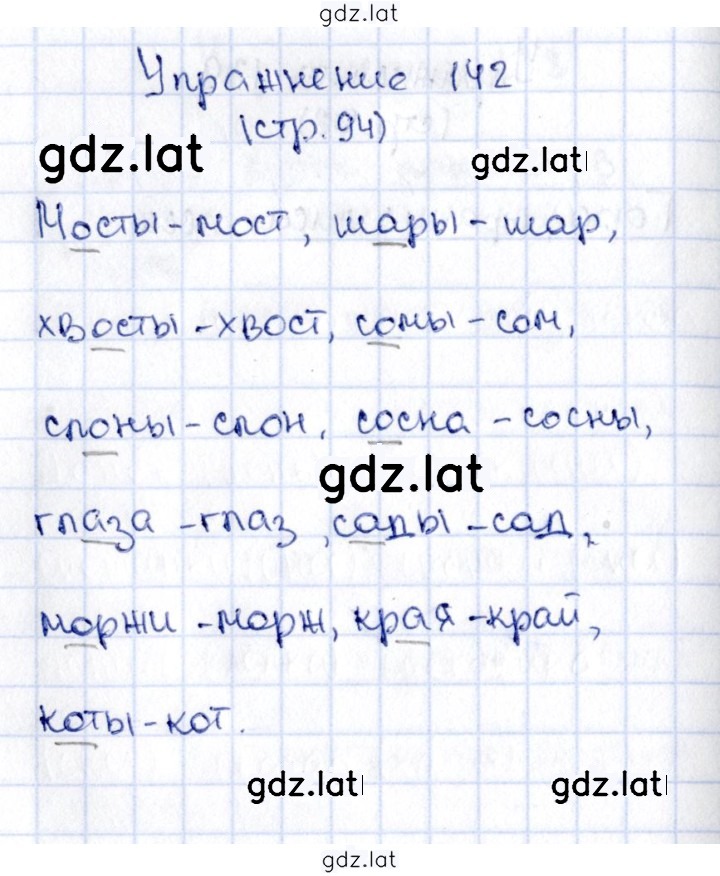 gdz.lat
Упражнение 142
(стр. 94)
gdz.lat gdz.lat
Мосты - мост, шары - шар,
хвосты - хвост, сомы - сом,
слоны - слон, сосна - сосны,
gdz.lat
глаза - глаз, сады - сад,
моржи - морж, края - край,
коты - кот.
gdz.lat gdz.lat
gdz.lat